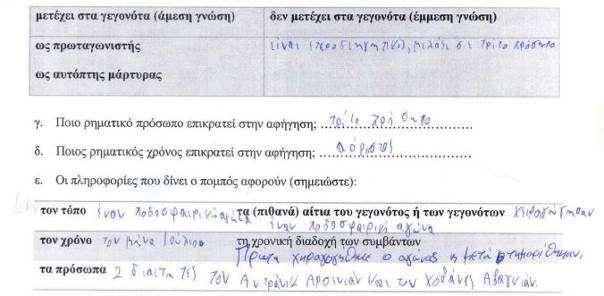 μετέχει στα γεγονότα (άμεση γνώση) δεν μετέχει στα γεγονότα (έμμεση γνώση)
ως πρωταγωνιστής είναι ετεροδιηγητικός, μιλάει σε τρίτο πρόσωπο
ως αυτόπτης μάρτυρας
γ. Ποιο ρηματικό πρόσωπο επικρατεί στην αφήγηση; τρίτο πρόσωπο
δ. Ποιος ρηματικός χρόνος επικρατεί στην αφήγηση; Αόριστος
ε. Οι πληροφορίες που δίνει ο πομπός αφορούν (σημειώστε):
τον τόπο έναν ποδοσφαιρικό αγώνα τα (πιθανά) αίτια του γεγονότος ή των γεγονότων
έναν ποδοσφαιρικό αγώνα
τον χρόνο τον μήνα Ιούλιο τη χρονική διαδοχή των συμβάντων
Πρώτα ο αγώνας
τα πρόσωπα 2 διαιτητές τον Αντράνικ Αρσινιάν και τον